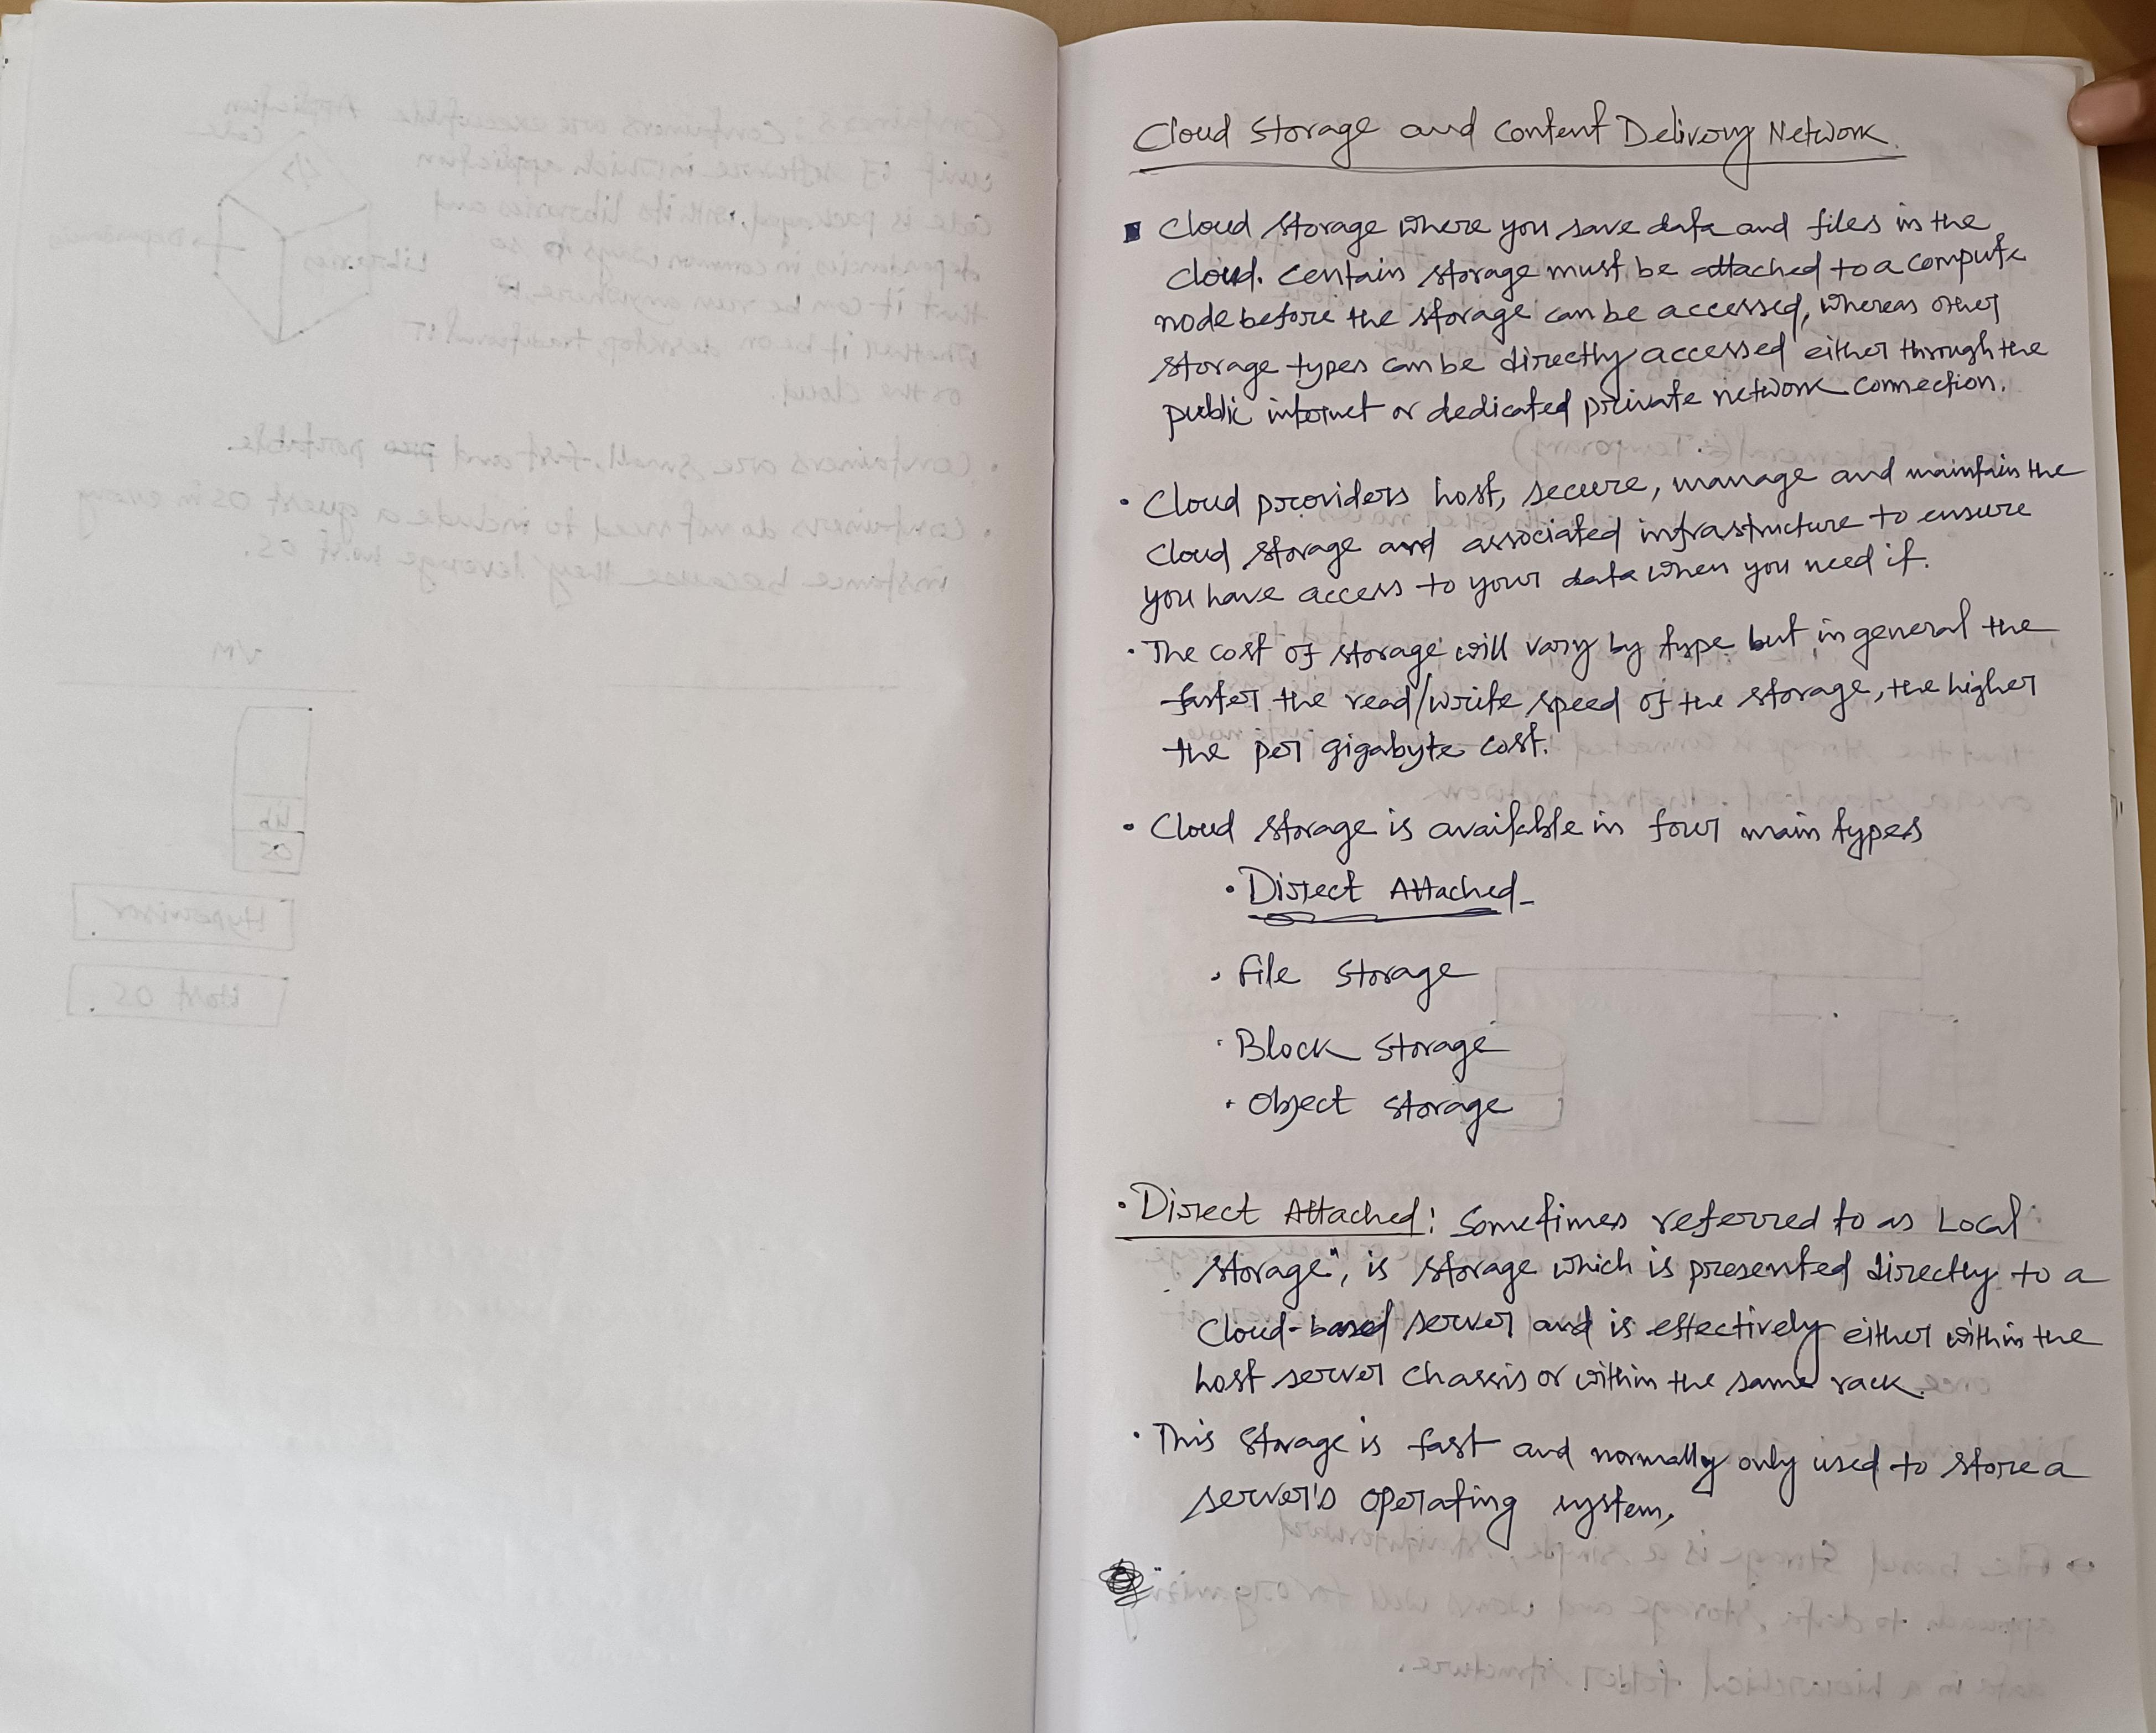 Cloud Storage and Content Delivery Network.
Cloud storage where you save data and files in the
cloud. Centain storage must be attached to a compute
node before the storage can be accessed, whereas other
storage types can be directly accessed either through the
public internet or dedicated private network connection.
• Cloud providers host, secure, manage and maintain the
cloud storage and associated infrastructure to ensure
you have access to your data when you need it.
• The cost of storage will vary by type but in general the
faster the read/write speed of the storage, the higher
the per gigabyte cost.
• Cloud storage is available in four main types
• Direct Attached
• File Storage
• Block Storage
• Object storage
• Direct Attached: Sometimes referred to as Local
storage", is storage which is presented directly to a
Cloud-based server and is effectively either within the
host server chassis or within the same rack.
• This storage is fast and normally only used to store a
server's operating system,